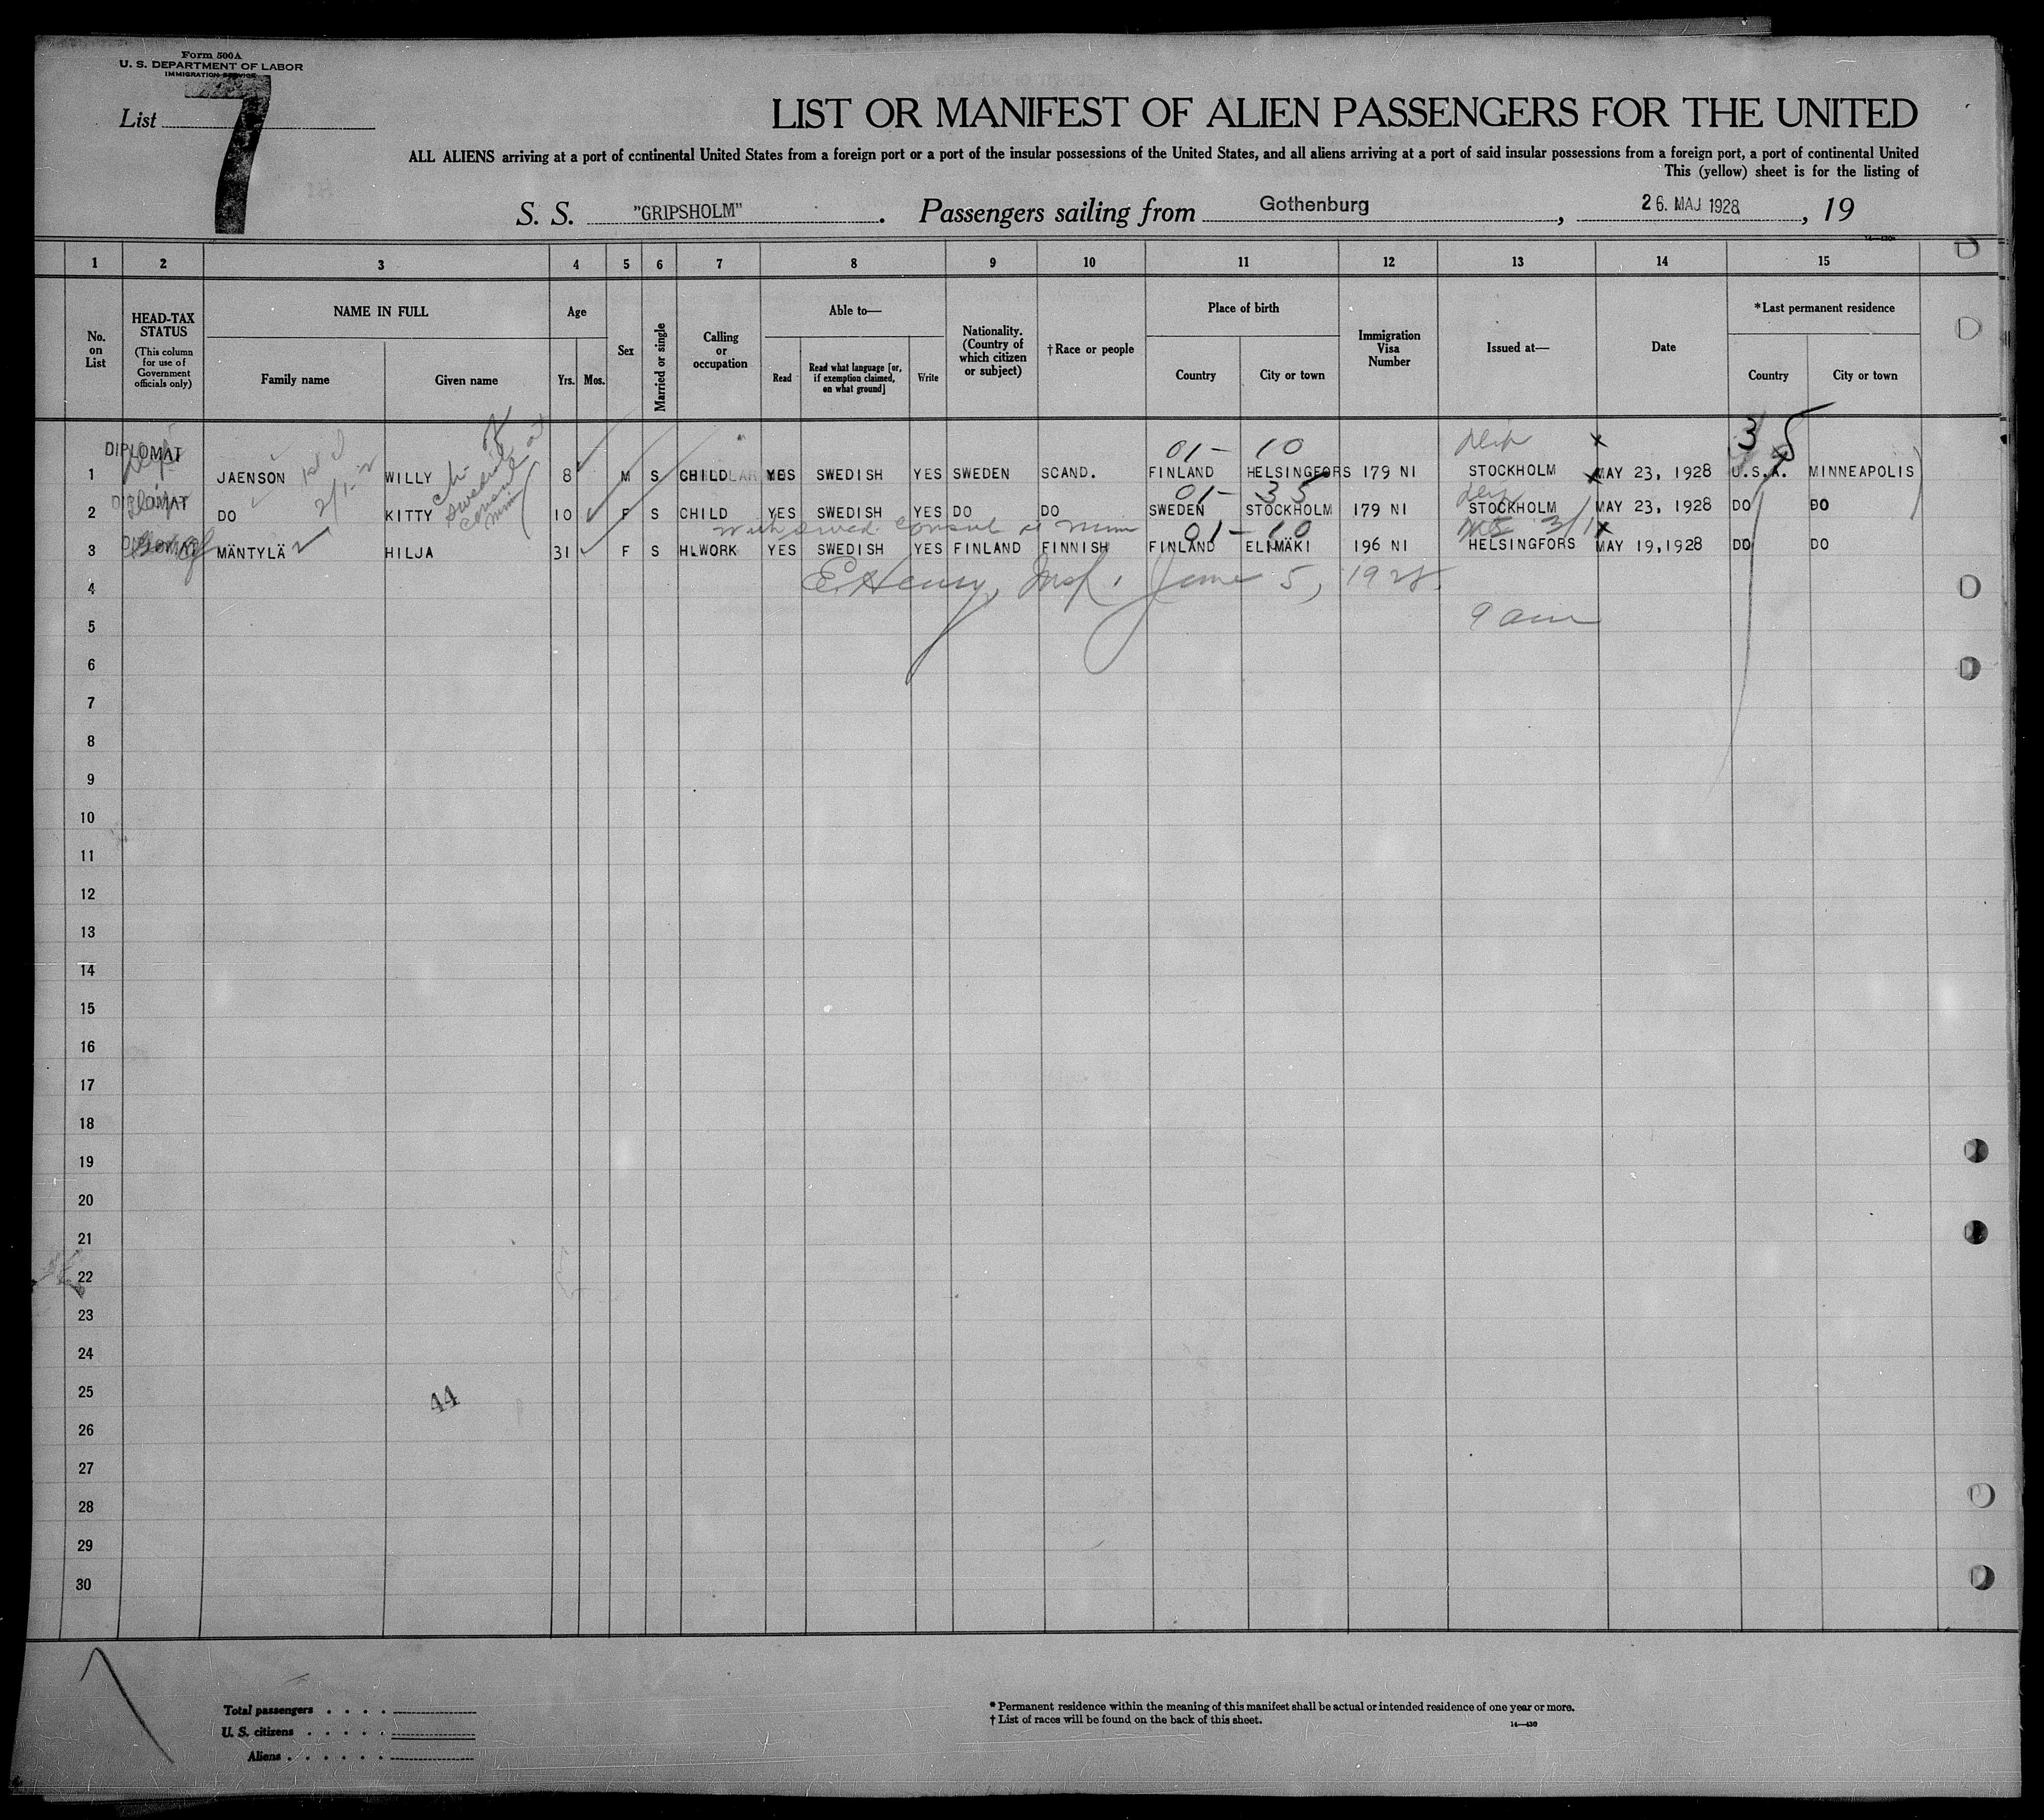 Form 500A
U. S. DEPARTMENT OF LABOR
IMMIGRATION SERVICE
List 7
LIST OR MANIFEST OF ALIEN PASSENGERS FOR THE UNITED
ALL ALIENS arriving at a port of continental United States from a foreign port or a port of the insular possessions of the United States, and all aliens arriving at a port of said insular possessions from a foreign port, a port of continental United
This (yellow) sheet is for the listing of
S. S. "GRIPSHOLM". Passengers sailing from Gothenburg, 26. MAJ 1928, 19
1 2 3 4 5 6 7 8 9 10 11 12 13 14 15
No. on List
HEAD-TAX STATUS
(This column for use of Government officials only)
NAME IN FULL
Family name
Given name
Age
Yrs. Mos.
Sex
Married or single
Calling or occupation
Able to—
Read
Read what language [or, if exemption claimed, on what ground]
Write
Nationality. (Country of which citizen or subject)
†Race or people
Place of birth
Country
City or town
Immigration Visa Number
Issued at—
Date
*Last permanent residence
Country
City or town
01- 10 dip 35
1 DIPLOMAT JAENSON WILLY 8 M S CHILD YES SWEDISH YES SWEDEN SCAND. FINLAND HELSINGFORS 179 NI STOCKHOLM MAY 23, 1928 U.S.A. MINNEAPOLIS
ch. of Swedish consul at Minn
01- 35 dip
2 DIPLOMAT DO KITTY 10 F S CHILD YES SWEDISH YES DO DO SWEDEN STOCKHOLM 179 NI STOCKHOLM MAY 23, 1928 DO DO
with swed. consul at Minn 01- 10
3 DIPLOMAT MÄNTYLÄ HILJA 31 F S H.WORK YES SWEDISH YES FINLAND FINNISH FINLAND ELIMÄKI 196 NI HELSINGFORS MAY 19,1928 DO DO
4 E. Henry, Insp. June 5, 1928.
5 9 am
6
7
8
9
10
11
12
13
14
15
16
17
18
19
20
21
22
23
24
25 44
26
27
28
29
30
Total passengers
U. S. citizens
Aliens
* Permanent residence within the meaning of this manifest shall be actual or intended residence of one year or more.
† List of races will be found on the back of this sheet.
14—430